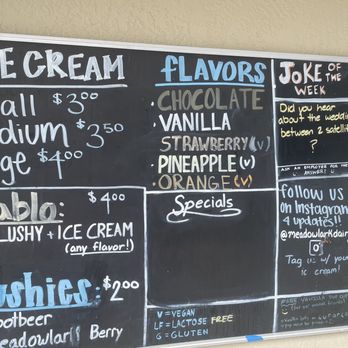 E CREAM
all $3.00
dium $3.50
ge $4.00
ablo: $4.00
LUSHY + ICE CREAM
(any flavor!)
ushies: $2.00
ootbeer
eadowlark Berry
FLAVORS
• CHOCOLATE
• VANILLA
STRAWBERRY (V)
• PINEAPPLE (V)
• ORANGE (V)
Specials
V = VEGAN
LF = LACTOSE FREE
G = GLUTEN
JOKE OF THE
WEEK
Did you hear
about the weddin
between 2 satellit
?
ASK AN EMPLOYEE FOR THE
ANSWER!
follow us
on Instagram
4 updates!!
@meadowlarkdair
Tag us w/ your
ice cream!